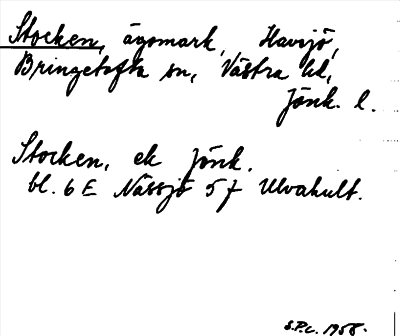 Stocken, ägomark, Havsjö,
Bringetofta sn, Västra hd,
Jönk. l.
Stocken, ek Jönk.
bl. 6 E Nässjö 5 f Ulvahult.
S.P.c. 1958.